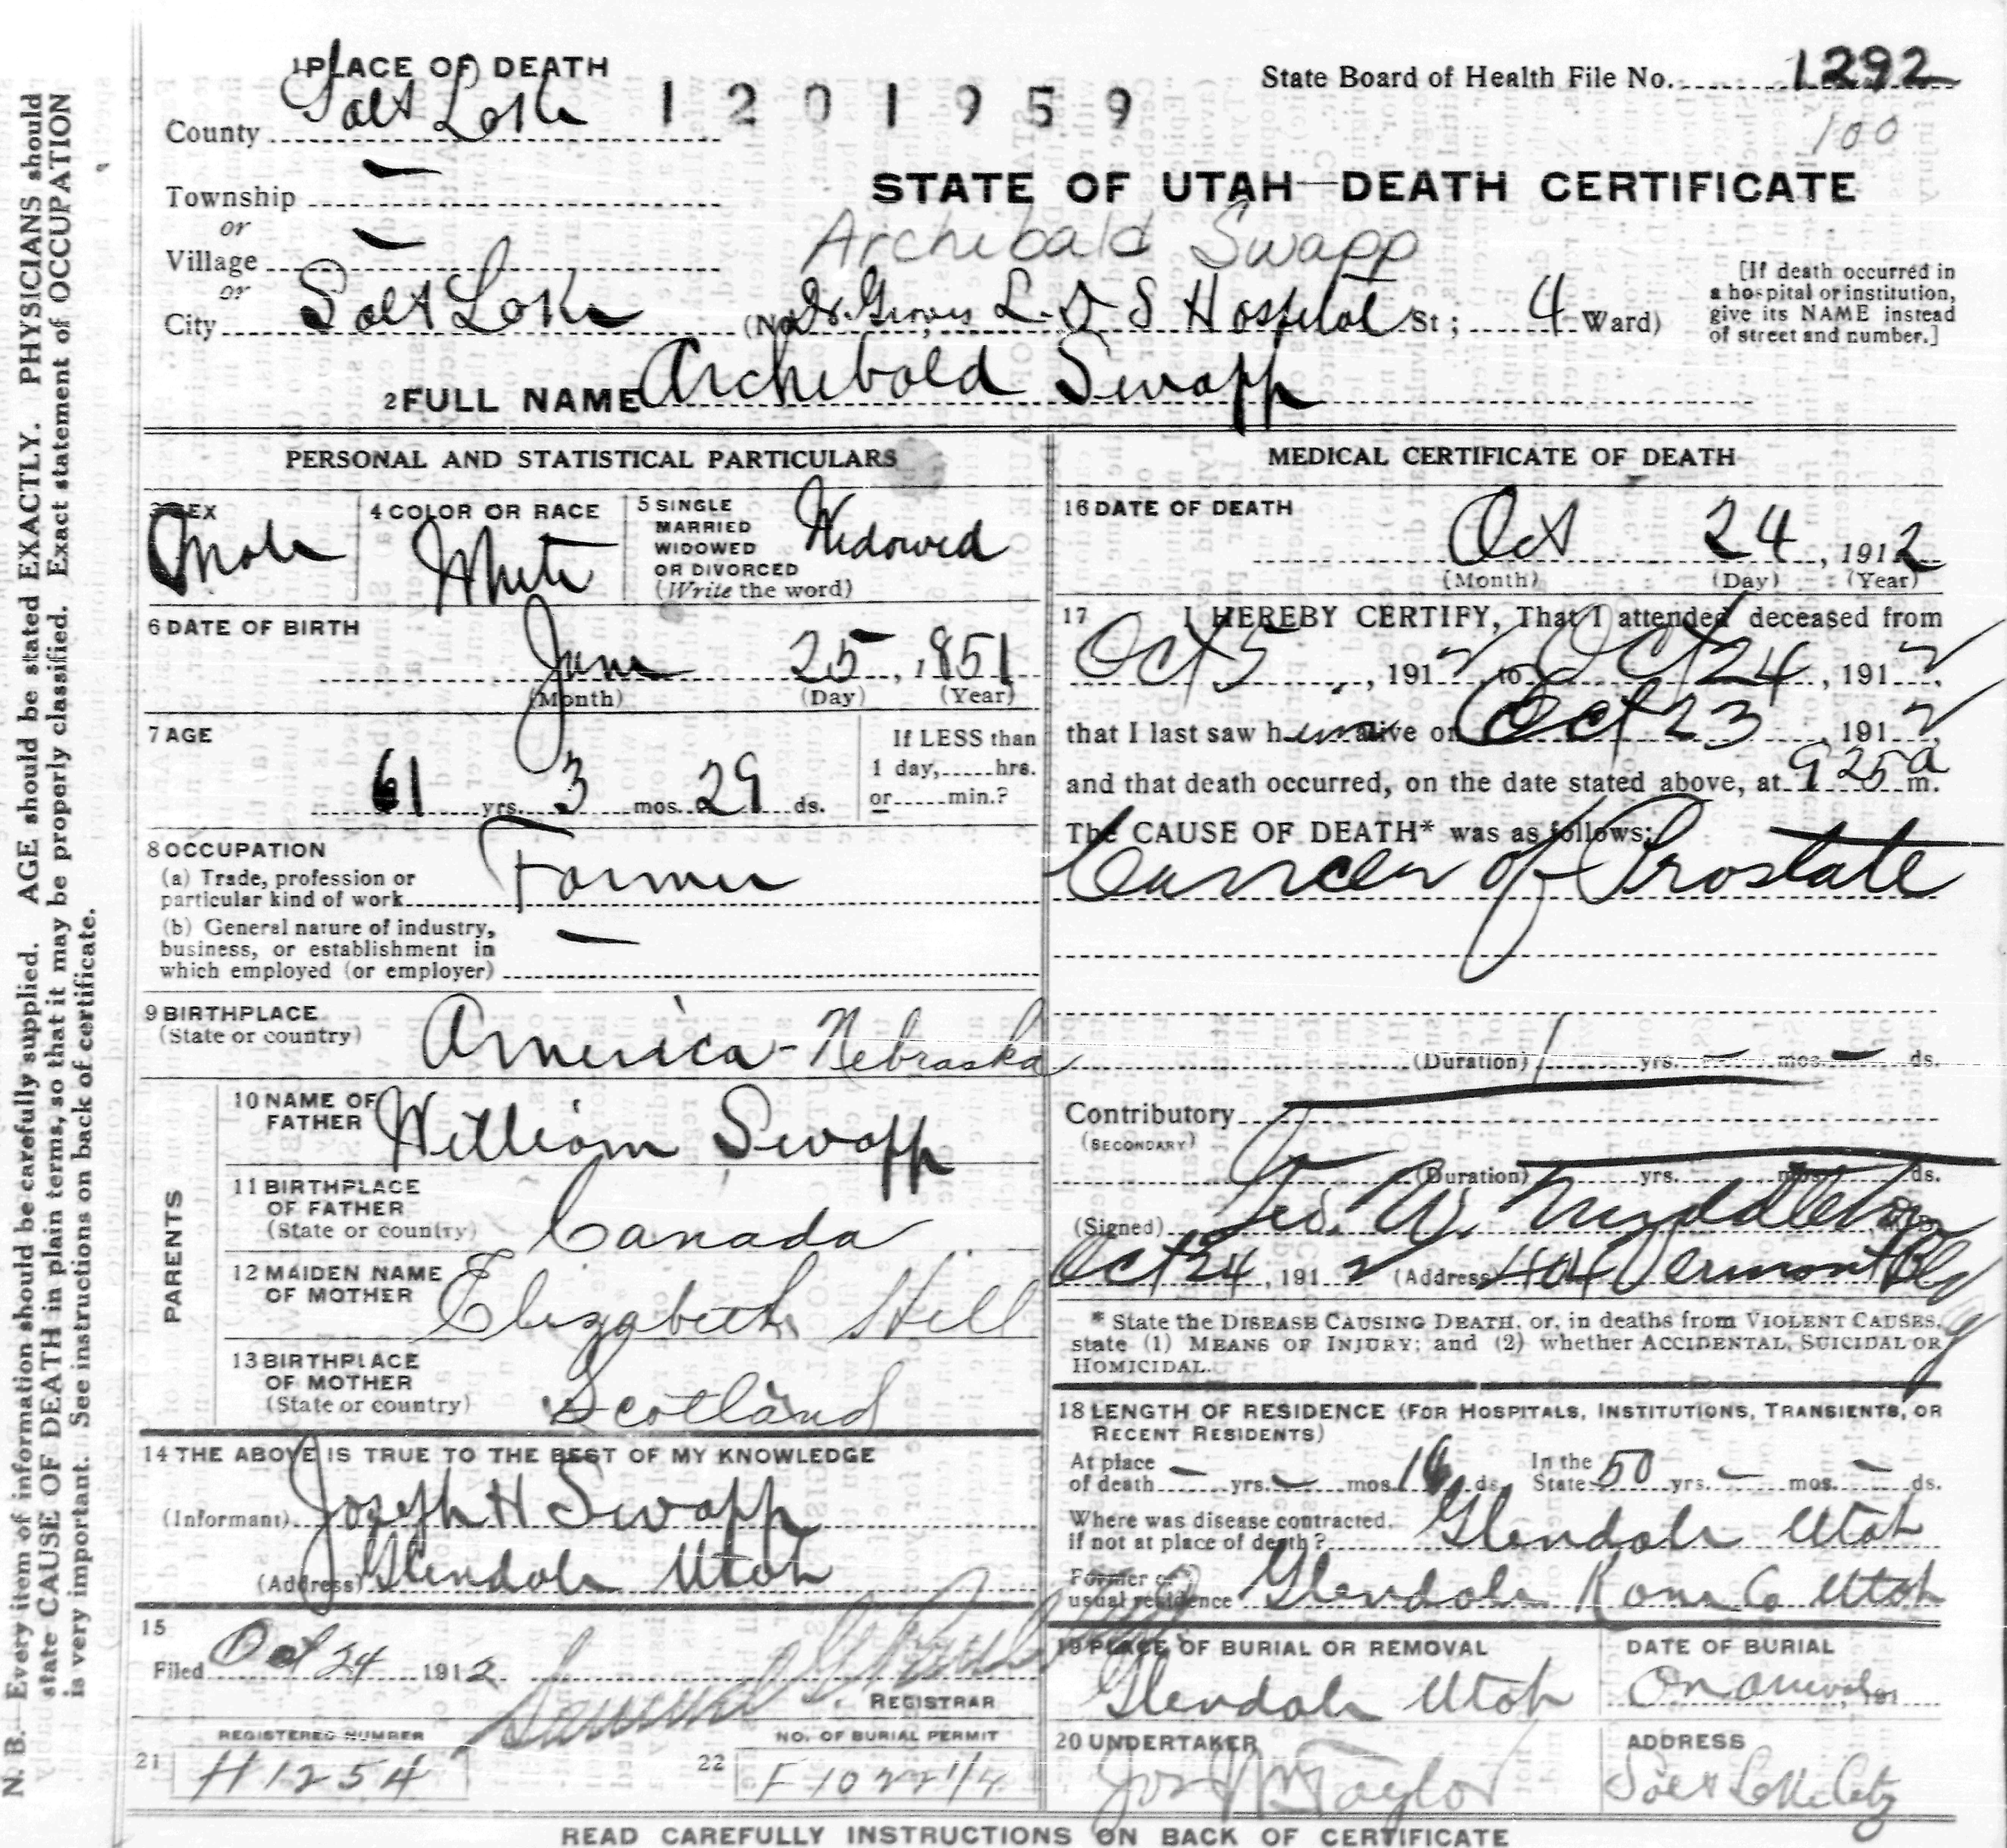 1 PLACE OF DEATH
State Board of Health File No. 1292
County Salt Lake 1201959
100
Township —
STATE OF UTAH—DEATH CERTIFICATE
or
Village —
Archibald Swapp
or
City Salt Lake (No. Dr. Groves L.D.S Hospital St; 4 Ward)
[If death occurred in
a hospital or institution,
give its NAME instead
of street and number.]
2 FULL NAME Archibald Swapp
PERSONAL AND STATISTICAL PARTICULARS
3 SEX Male
4 COLOR OR RACE White
5 SINGLE
MARRIED
WIDOWED
OR DIVORCED
(Write the word)
Widowed
6 DATE OF BIRTH
June 25, 1851
(Month) (Day) (Year)
7 AGE
61 yrs. 3 mos. 29 ds.
If LESS than
1 day,.....hrs.
or.....min.?
8 OCCUPATION
(a) Trade, profession or
particular kind of work Farmer
(b) General nature of industry,
business, or establishment in
which employed (or employer) —
9 BIRTHPLACE
(State or country) America - Nebraska
PARENTS
10 NAME OF
FATHER William Swapp
11 BIRTHPLACE
OF FATHER
(State or country) Canada
12 MAIDEN NAME
OF MOTHER Elizabeth Hill
13 BIRTHPLACE
OF MOTHER
(State or country) Scotland
14 THE ABOVE IS TRUE TO THE BEST OF MY KNOWLEDGE
(Informant) Joseph H Swapp
(Address) Glendale Utah
15
Filed Oct 24 1912
REGISTRAR
REGISTERED NUMBER
21 H1254
NO. OF BURIAL PERMIT
22
MEDICAL CERTIFICATE OF DEATH
16 DATE OF DEATH
Oct 24, 1912
(Month) (Day) (Year)
17 I HEREBY CERTIFY, That I attended deceased from
Oct 5, 1912 to Oct 24, 1912,
that I last saw him alive on Oct 23, 1912,
and that death occurred, on the date stated above, at 9 25 a m.
The CAUSE OF DEATH* was as follows:
Cancer of Prostate
(Duration) 1 yrs. — mos. — ds.
Contributory
(SECONDARY)
(Duration) yrs. mos. ds.
(Signed) Geo. W. Middleton
Oct 24, 1912 (Address) 404 Vermont Bldg
* State the DISEASE CAUSING DEATH, or, in deaths from VIOLENT CAUSES,
state (1) MEANS OF INJURY; and (2) whether ACCIDENTAL, SUICIDAL OR
HOMICIDAL.
18 LENGTH OF RESIDENCE (FOR HOSPITALS, INSTITUTIONS, TRANSIENTS, OR
RECENT RESIDENTS)
At place
of death — yrs. — mos. 16 ds. In the
State 50 yrs. — mos. — ds.
Where was disease contracted,
if not at place of death? Glendale Utah
Former or
usual residence Glendale Kane Co Utah
19 PLACE OF BURIAL OR REMOVAL
Glendale Utah
DATE OF BURIAL
On arrival, 191
20 UNDERTAKER
Jos Wm Taylor
ADDRESS
Salt Lake City
READ CAREFULLY INSTRUCTIONS ON BACK OF CERTIFICATE
N. B.—Every item of information should be carefully supplied. AGE should be stated EXACTLY. PHYSICIANS should
state CAUSE OF DEATH in plain terms, so that it may be properly classified. Exact statement of OCCUPATION
is very important. See instructions on back of certificate.